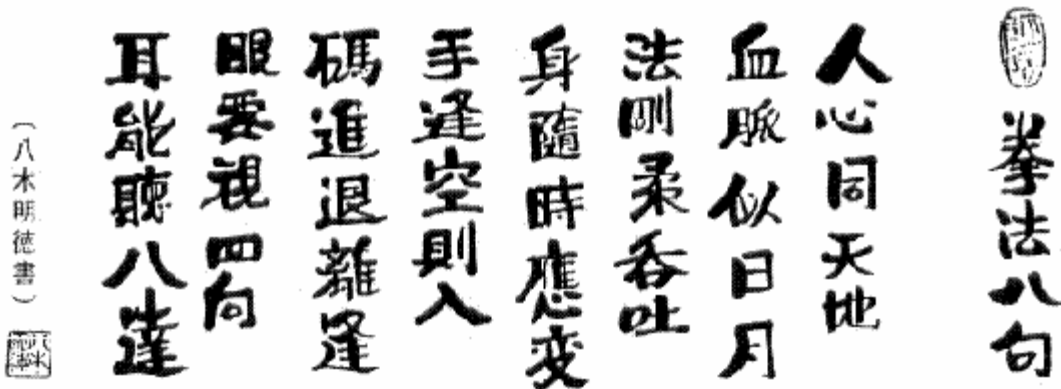 拳法八句
人心同天地
血脈似日月
法剛柔呑吐
身隨時應変
手逢空則入
碼進退離逢
眼要視四向
耳能聽八達
(八木明徳書)